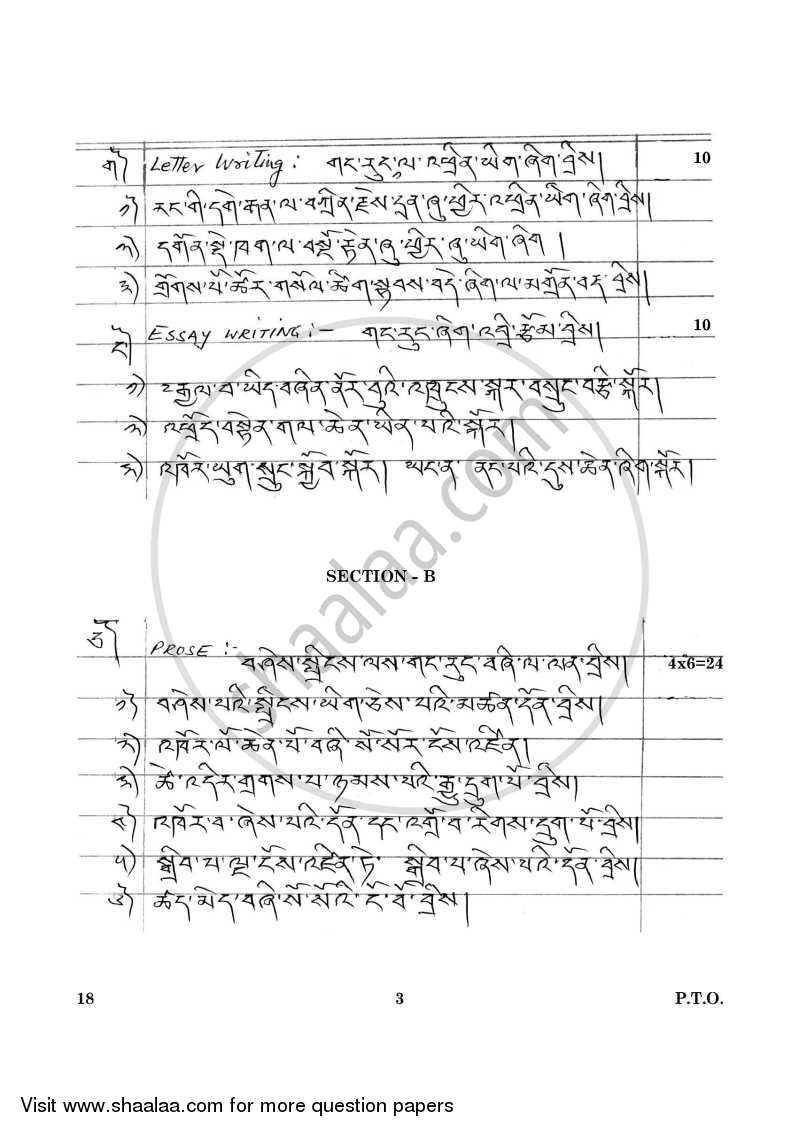 ༣༽ Letter Writing: གང་རུང་ལ་འཕྲིན་ཡིག་ཞིག་བྲིས། 10
༡༽ རང་གི་དགེ་རྒན་ལ་བཀྲིན་རྗེས་དྲན་ཞུ་ཕྱིར་འཕྲིན་ཡིག་ཞིག་བྲིས།
༢༽ དགོན་སྡེ་ཁག་ལ་བསྔོ་རྟེན་ཞུ་ཕྱིར་ཞུ་ཡིག་ཞིག །
༣༽ གྲོགས་པོ་ཚོར་གསོལ་ཚིག་སྟབས་བདེ་ཞིག་ལ་མགྲོན་བརྡ་བྲིས།
ESSAY WRITING:- གང་རུང་ཞིག་འབྲི་རྩོམ་བྲིས། 10
༡༽ རྒྱལ་བ་ཡིད་བཞིན་ནོར་བུའི་འཁྲུངས་སྐར་བསྲུང་བརྩི་སྐོར།
༢༽ འཕྲོད་བསྟེན་གལ་ཆེན་ཡིན་པའི་སྐོར།
༣༽ འཁོར་ཡུག་སྲུང་སྐྱོབ་སྐོར། ཡང་ན ནང་པའི་དུས་ཆེན་ཞིག་སྐོར།
SECTION - B
PROSE :-
བཤེས་སྤྲིངས་ལས་གང་རུང་བཞི་ལ་ལན་བྲིས། 4x6=24
༡༽ བཤེས་པའི་སྤྲིངས་ཡིག་ཅེས་པའི་མཚན་དོན་བྲིས།
༢༽ འཁོར་ལོ་ཆེན་པོ་བཞི་སོ་སོར་ངོས་འཛིན།
༣༽ ཚེ་འདིར་གྲགས་པ་ཉམས་པའི་རྒྱུ་དྲུག་པོ་བྲིས།
༤༽ འཁོར་བ་ཞེས་པའི་དོན་དང་འགྲོ་བ་རིགས་དྲུག་པོ་བྲིས།
༥༽ སྒྲིབ་པ་ལྔ་ངོས་འཛིན་ཏེ་ སྒྲིབ་པ་ཞེས་པའི་དོན་བྲིས།
༦༽ ཚད་མེད་བཞི་སོ་སོའི་ངོ་བོ་བྲིས།
18 3 P.T.O.
shaalaa.com
Visit www.shaalaa.com for more question papers